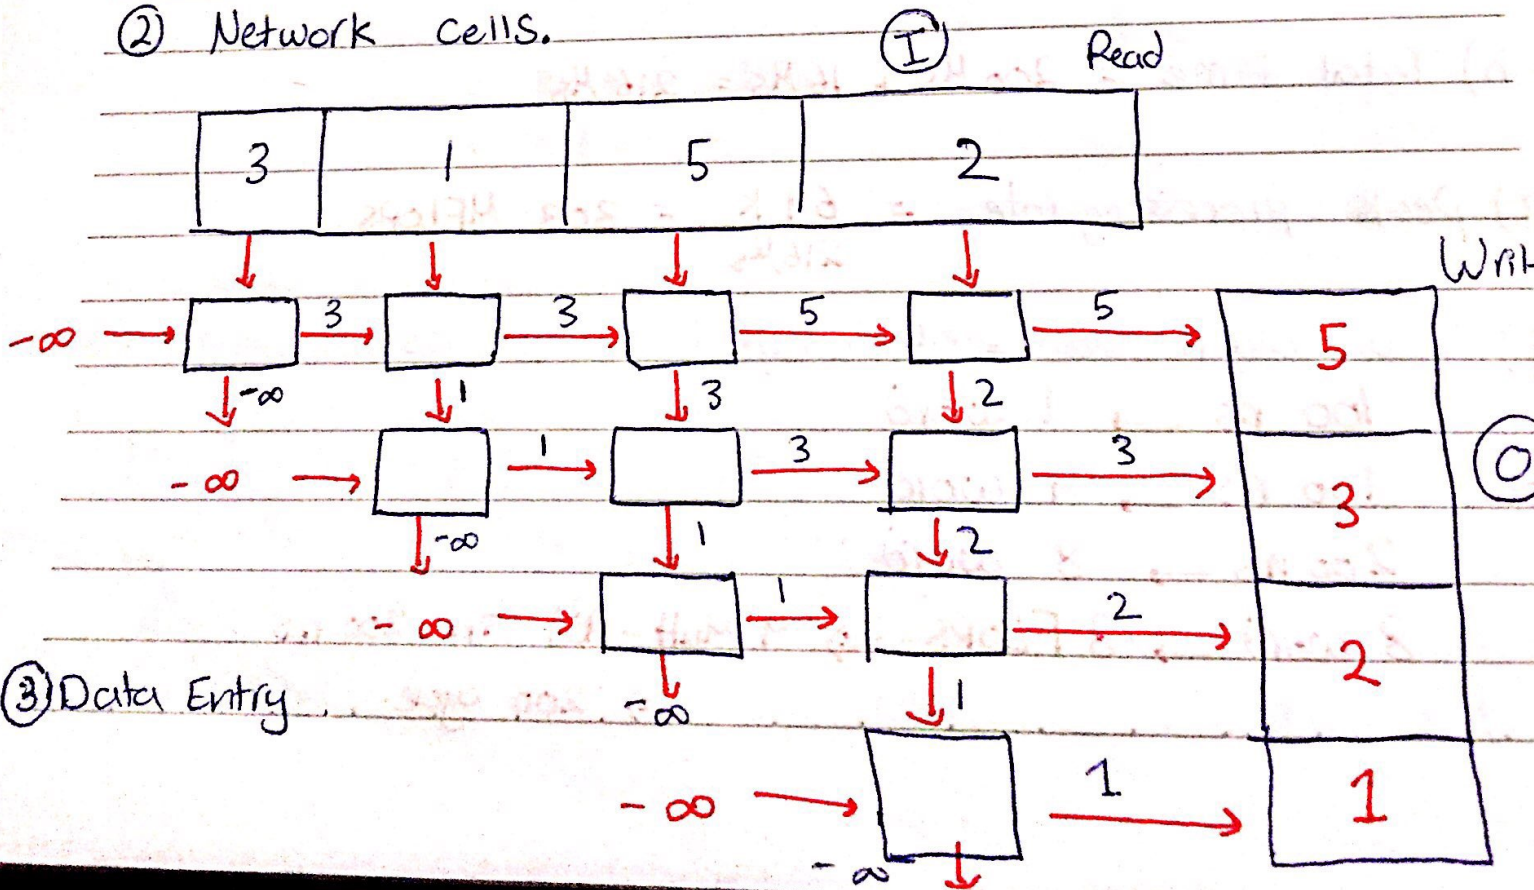 ② Network cells. Ⓘ Read
3 1 5 2
Writ
-∞ 3 3 5 5 5
-∞ 1 3 2
-∞ 1 3 3 3 O
-∞ 1 2
-∞ 1 2 2
③ Data Entry.
-∞ 1
-∞ 1 1
-∞